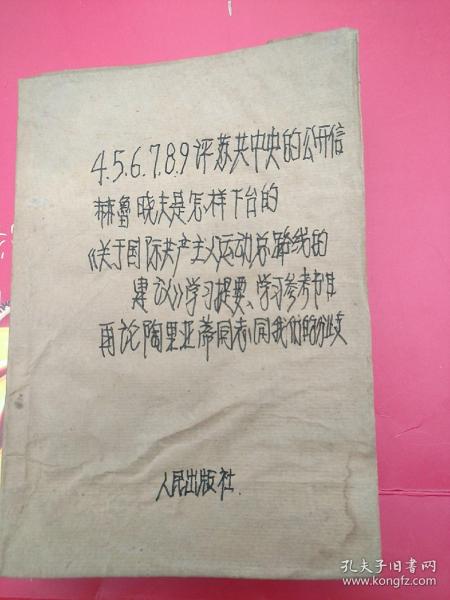 4.5.6.7.8.9评苏共中央的公开信
赫鲁晓夫是怎样下台的
《关于国际共产主义运动总路线的
建议》学习提要、学习参考书目
再论陶里亚蒂同志同我们的分歧
人民出版社.
孔夫子旧书网
www.kongfz.com